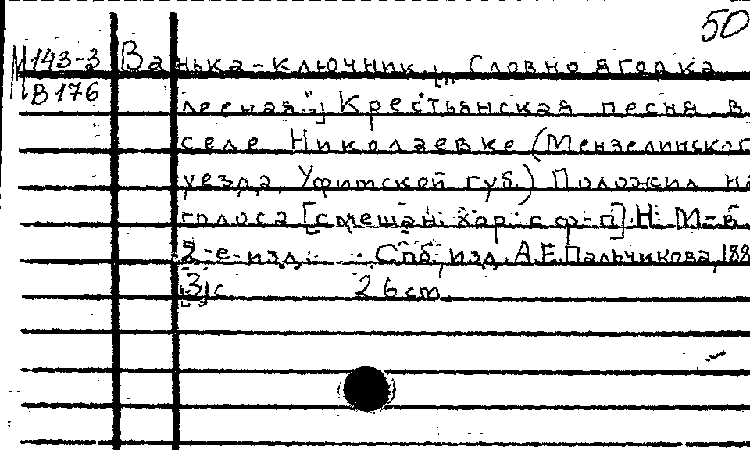 50
М 143-3
В 176
Ванька-ключник. [„Словно ягорка
лесная"] Крестьянская песня в
селе Николаевке (Мензелинског
уезда, Уфимской губ.) Положил на
голоса [смешан. хор. с ф-п]. Н. М-в
2-е изд. Спб, изд. А.Е.Пальчикова, 188
[3]с. 26 cm.